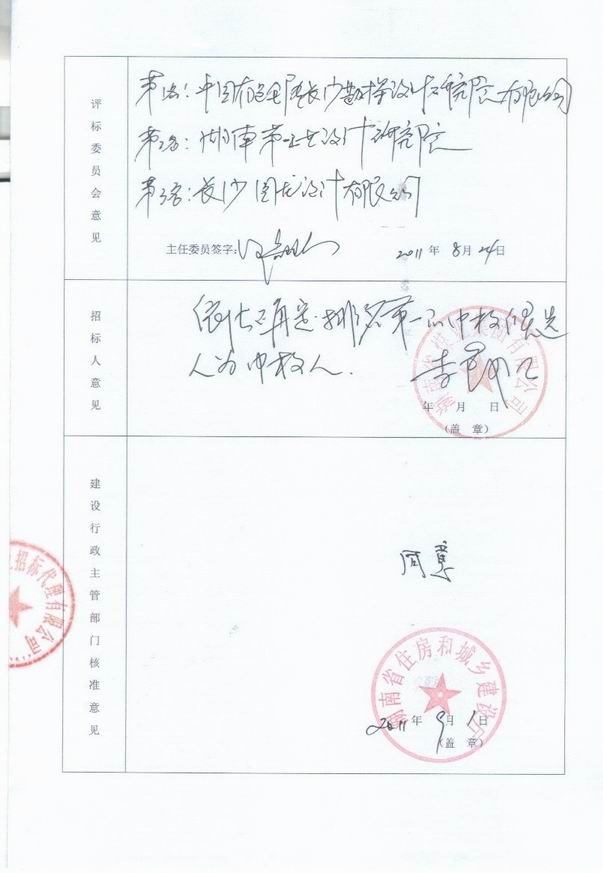 评标委员会意见
第一名：中国有色金属长沙勘察设计研究院有限公司
第二名：湖南第一工业设计研究院
第三名：长沙国龙设计有限公司
主任委员签字：
2011年8月24日
招标人意见
依法确定排名第一的中标候选
人为中标人.
年 月 日
（盖 章）
建设行政主管部门核准意见
湖南省住房和城乡建设厅
2011年9月1日
（盖 章）
招标代理有限公司